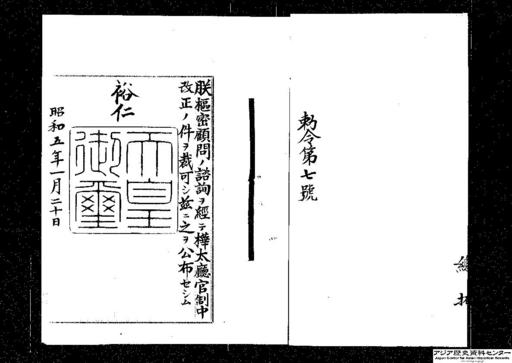 勅令第七號
朕樞密顧問ノ諮詢ヲ經テ樺太廳官制中
改正ノ件ヲ裁可シ茲ニ之ヲ公布セシム
裕仁
天皇
御璽
昭和五年一月二十日
アジア歴史資料センター
Japan Center for Asian Historical Records